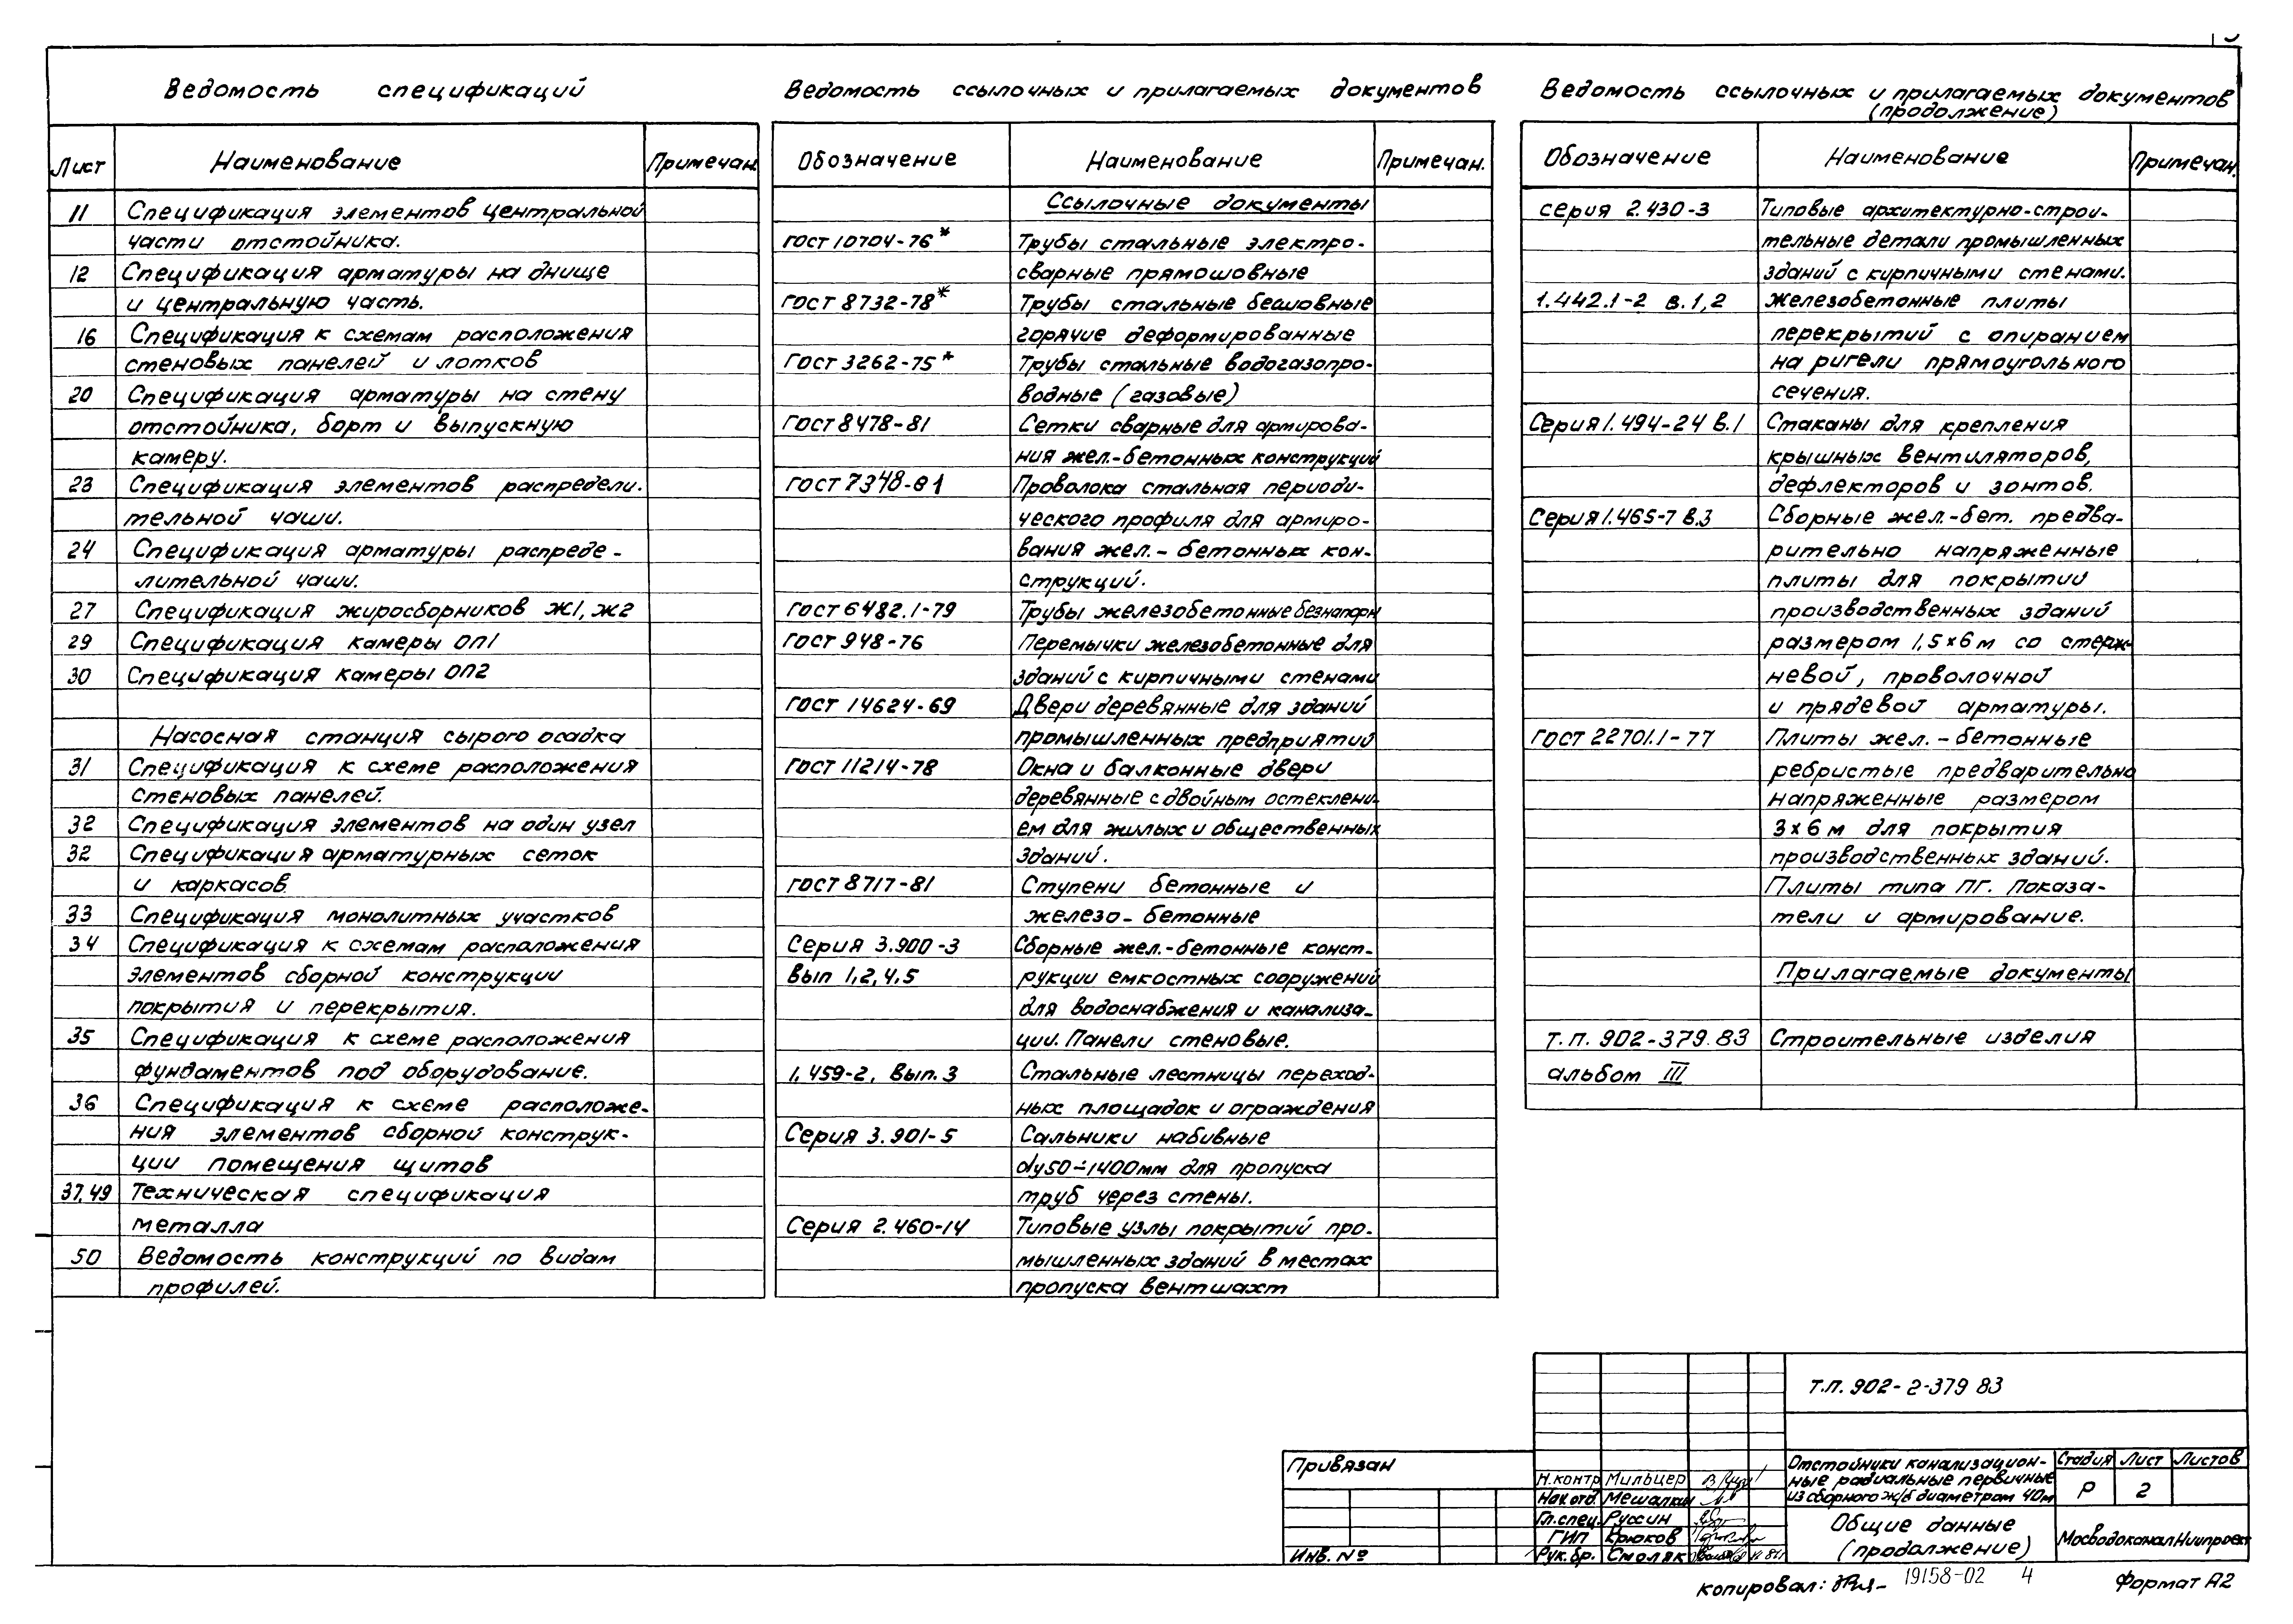 Ведомость спецификаций
Лист Наименование Примечан.
11 Спецификация элементов центральной
части отстойника.
12 Спецификация арматуры на днище
и центральную часть.
16 Спецификация к схемам расположения
стеновых панелей и лотков
20 Спецификация арматуры на стену
отстойника, борт и выпускную
камеру.
23 Спецификация элементов распредели-
тельной чаши.
24 Спецификация арматуры распреде-
лительной чаши.
27 Спецификация жиросборников Ж1, Ж2
29 Спецификация камеры ОП1
30 Спецификация камеры ОП2
Насосная станция сырого осадка
31 Спецификация к схеме расположения
стеновых панелей.
32 Спецификация элементов на один узел
32 Спецификация арматурных сеток
и каркасов.
33 Спецификация монолитных участков
34 Спецификация к схемам расположения
элементов сборной конструкции
покрытия и перекрытия.
35 Спецификация к схеме расположения
фундаментов под оборудование.
36 Спецификация к схеме расположе-
ния элементов сборной конструк-
ции помещения щитов
37,49 Техническая спецификация
металла
50 Ведомость конструкций по видам
профилей.
Ведомость ссылочных и прилагаемых документов
Обозначение Наименование Примечан.
Ссылочные документы
ГОСТ 10704-76* Трубы стальные электро-
сварные прямошовные
ГОСТ 8732-78* Трубы стальные бесшовные
горячие деформированные
ГОСТ 3262-75* Трубы стальные водогазопро-
водные (газовые)
ГОСТ 8478-81 Сетки сварные для армирова-
ния жел.-бетонных конструкций
ГОСТ 7348-81 Проволока стальная периоди-
ческого профиля для армиро-
вания жел.-бетонных кон-
струкций.
ГОСТ 6482.1-79 Трубы железобетонные безнапорн
ГОСТ 948-76 Перемычки железобетонные для
зданий с кирпичными стенами
ГОСТ 14624-69 Двери деревянные для зданий
промышленных предприятий
ГОСТ 11214-78 Окна и балконные двери
деревянные с двойным остеклени-
ем для жилых и общественных
зданий.
ГОСТ 8717-81 Ступени бетонные и
железо-бетонные
Серия 3.900-3 Сборные жел.-бетонные конст-
Вып 1,2,4,5 рукции емкостных сооружений
для водоснабжения и канализа-
ции. Панели стеновые.
1.459-2, Вып.3 Стальные лестницы переход-
ных площадок и ограждения
Серия 3.901-5 Сальники набивные
dy50÷1400мм для пропуска
труб через стены.
Серия 2.460-14 Типовые узлы покрытий про-
мышленных зданий в местах
пропуска вентшахт
Ведомость ссылочных и прилагаемых документов
(продолжение)
Обозначение Наименование Примечан.
серия 2.430-3 Типовые архитектурно-строи-
тельные детали промышленных
зданий с кирпичными стенами.
1.442.1-2 в.1,2 Железобетонные плиты
перекрытий с опиранием
на ригели прямоугольного
сечения.
Серия 1.494-24 в.1 Стаканы для крепления
крышных вентиляторов,
дефлекторов и зонтов.
Серия 1.465-7 в.3 Сборные жел.-бет. предва-
рительно напряженные
плиты для покрытий
производственных зданий
размером 1,5×6 м со стерж-
невой, проволочной
и прядевой арматуры.
ГОСТ 22701.1-77 Плиты жел.-бетонные
ребристые предварительно
напряженные размером
3×6 м для покрытия
производственных зданий.
Плиты типа ПГ. Показа-
тели и армирование.
Прилагаемые документы
Т.П. 902-379.83 Строительные изделия
альбом III
Т.П. 902-2-379 83
Привязан
Инв. №
Н.контр Мильцер
Нач.отд. Мешалкин
Гл.спец. Руссин
ГИП Крюков
Рук.бр. Смоляк
Отстойники канализацион-
ные радиальные первичные
из сборного ж/б диаметром 40м
Стадия Лист Листов
Р 2
Общие данные
(продолжение)
МосводоканалНиипроект
Копировал: 19158-02 4 Формат А2